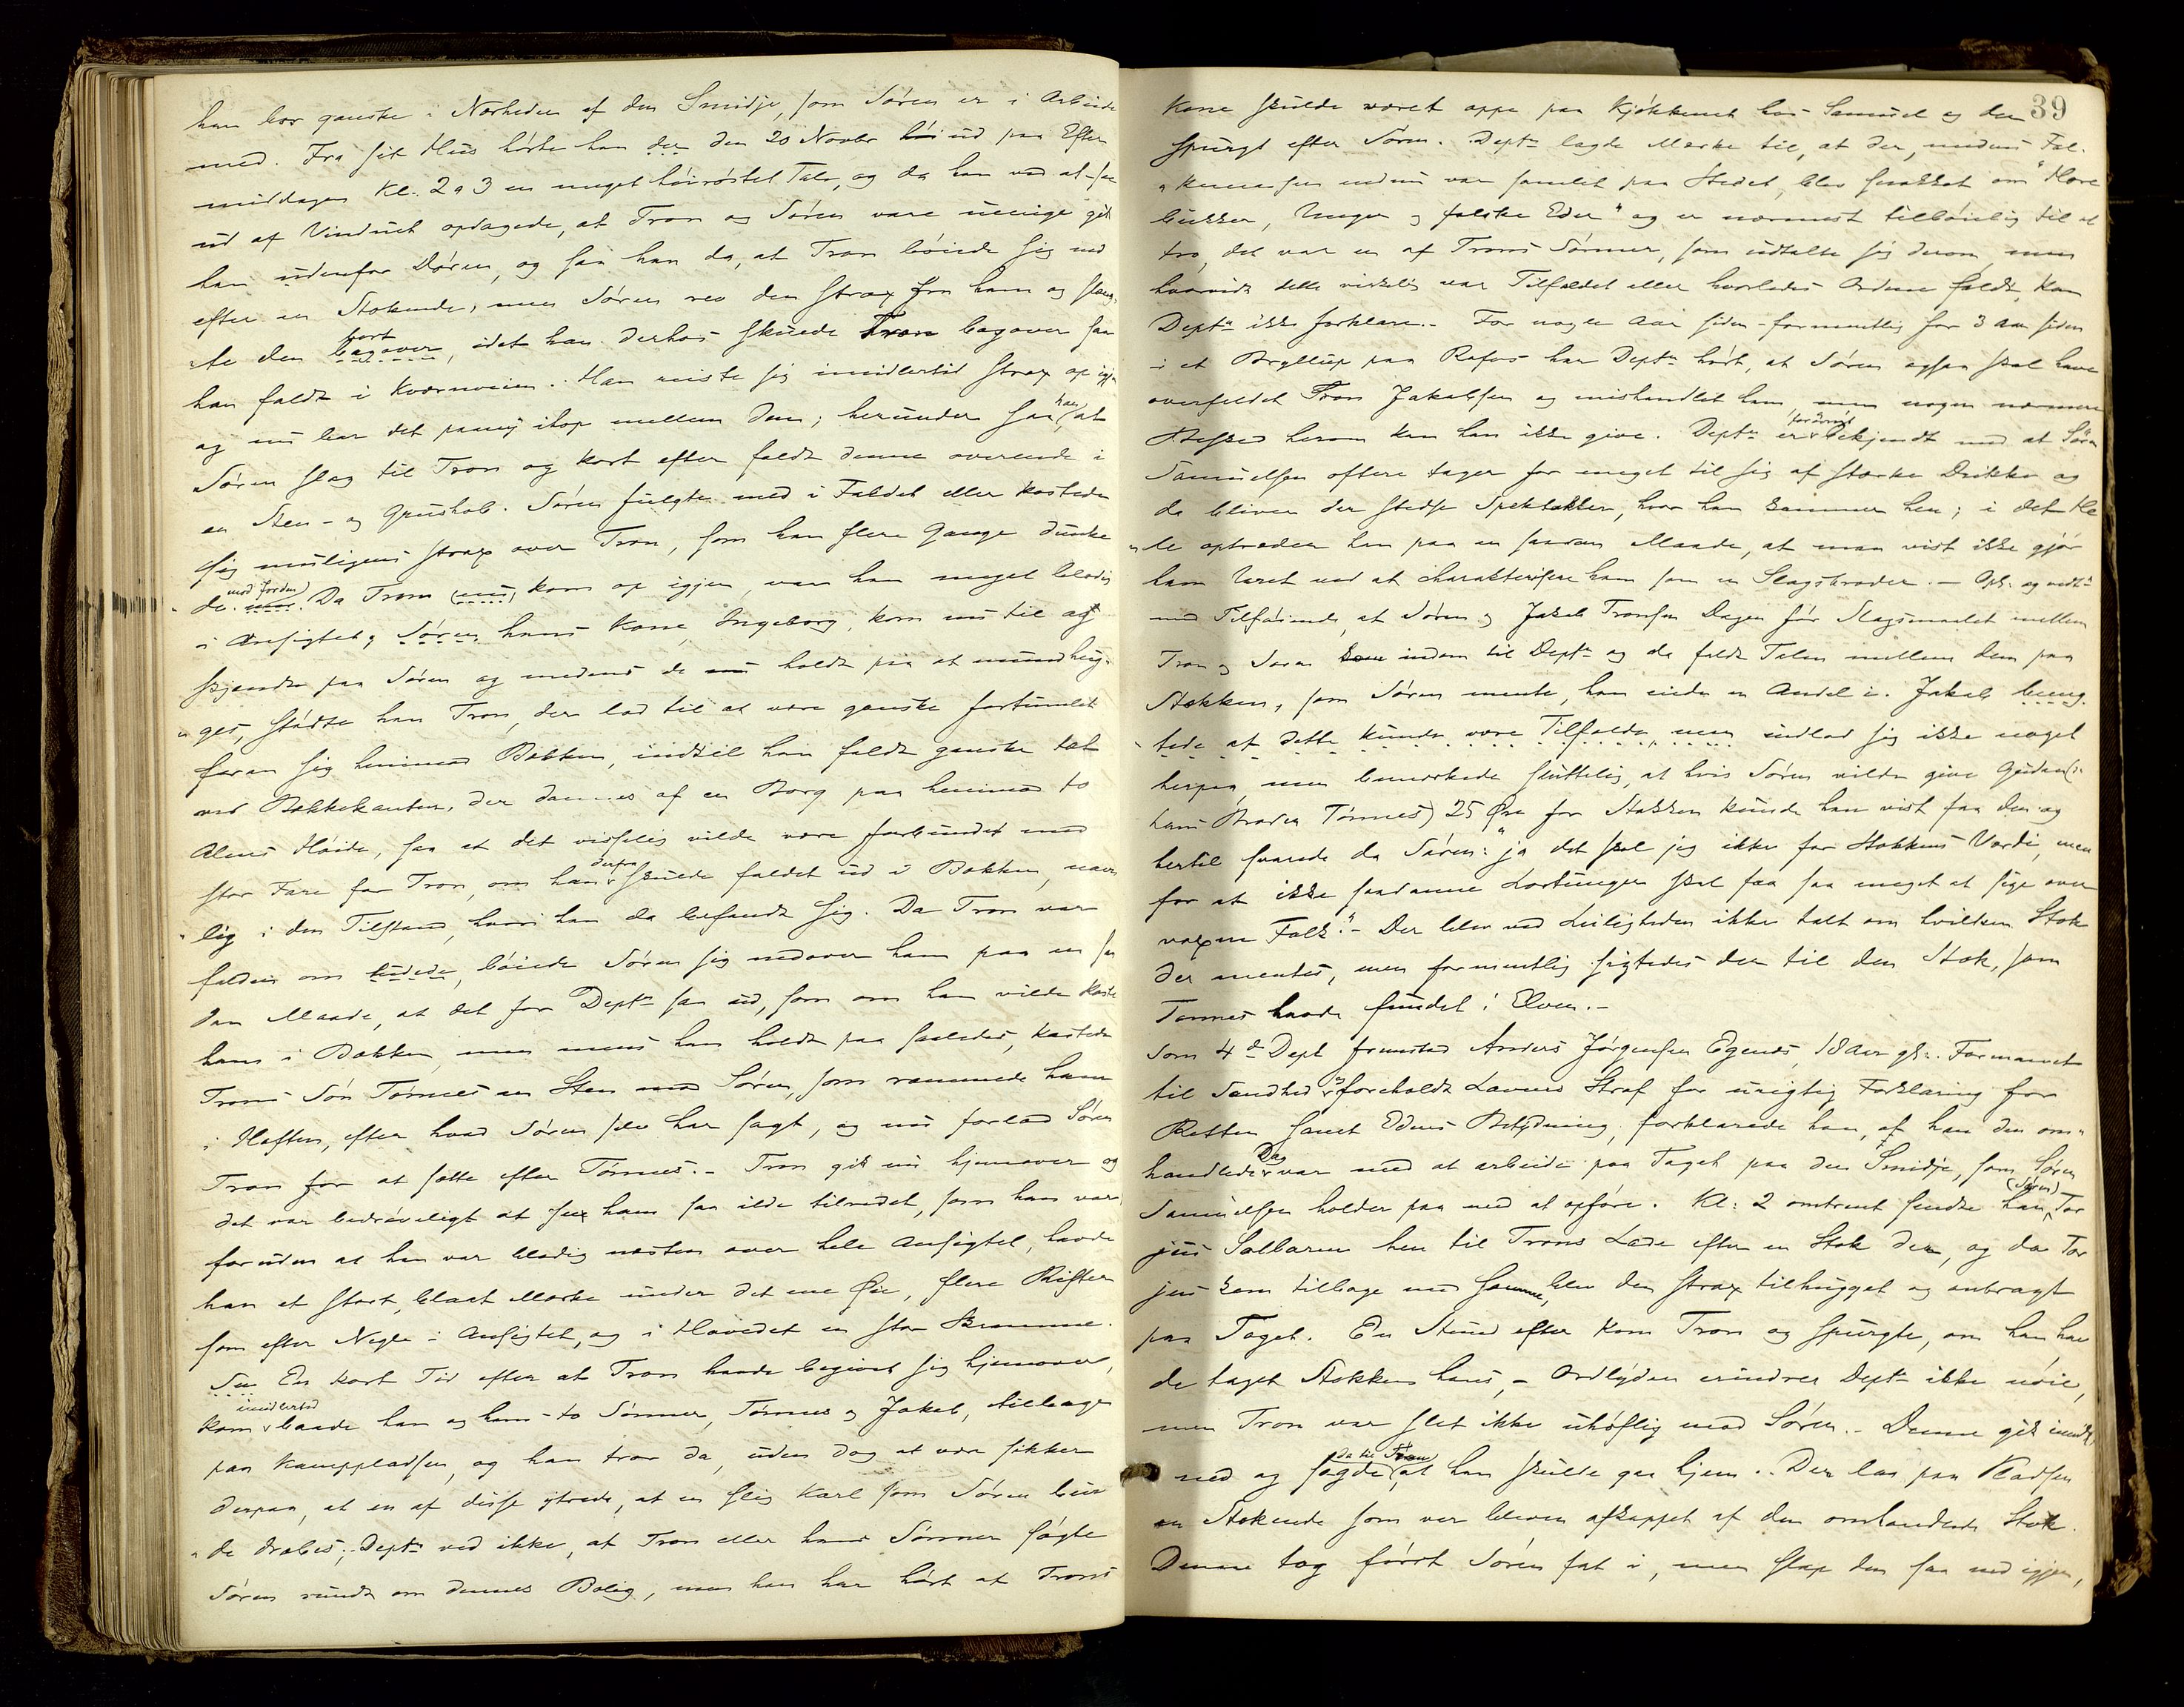 han bor ganske i Nærheden af den Smidje, som Søren er i Arbeide
med. Fra sit Hus hørte han der den 20 Novbr ud paa Efter
middagen Kl. 2 a 3 en meget høirøstet Tale, og da han ved at se
ud af Vinduet opdagede, at Tron og Søren vare uenige gik
han udenfor Døren, og saa han da, at Tron bøiede sig ned
efter en Stokende, men Søren rev den strax fra ham og slæng-
te den bort bagover, idet han derhos skuede Tron bagover saa
han faldt i Kværnveien. Han reiste sig imidlertid strax op igjen
og nu bar det paany ihop mellem dem; herunder saa han, at
Søren slog til Tron og kort efter faldt denne overende i
en Sten- og Grushob. Søren fulgte med i Faldet eller kastede
sig muligens strax over Tron, som han flere Gange dunke
de mod Jorden. Da Tron (nu) kom op igjen, var han meget blodig
i Ansigtet, Søren hans Kone, Ingeborg, kom nu til og
skjændte paa Søren og medens de holdt paa at mundhug-
ges, stødte han Tron, der lod til at være ganske fortumlet
foran sig henimod Bækken, indtil han faldt ganske tæt
ved Bækkekanten, der dannes af en Borg paa henimod to
Alens Høide, saa at det visselig vilde være forbundet med
stor Fare for Tron, om han derfra skulde faldet ud i Bækken, nav
lig i den Tilstand, hvori han da befandt sig. Da Tron var
falden om bøiede Søren sig nedover ham paa en saa
dan Maade, at det for Deptn saa ud, som om han vilde kaste
ham i Bækken, men mens han holdt paa saaledes, kastede
Trons Søn Tønnes en Sten mod Søren, som rammede ham
i Hoften, efter hvad Søren selv har sagt, og nu forlod Søren
Tron for at sætte efter Tønnes. - Tron gik nu hjemover og
det var bedrøveligt at see ham saa ilde tilredet, som han var,
foruden at han var blodig næsten over hele Ansigtet, havde
han et stort, blaat Mærke under det ene Øie, flere Rifter
som efter Negle i Ansigtet, og i Hovedet en stor Skramme.
En kort Tid efter at Tron havde begivet sig hjemover,
kom imidlertid baade han og hans to Sønner, Tønnes og Jakob, tilbage
paa Kamppladsen, og han tror da, uden dog at være sikker
derpaa, at en af disse ytrede, at en slig Karl som Søren bur
de dræbes; Deptn ved ikke, at Tron eller hans Sønner søgte
Søren rundt om dennes Bolig, men han har hørt at Trons
39
Kone skulde været oppe paa Kjøkkenet hos Samuel og der
spurgt efter Søren. Deptn lagde Mærke til, at der, medens Fol-
kemassen endnu var samlet paa Stedet, blev snakket om "Hore
bukker, Unger og falske Eder" og er nærmest tilbøielig til at
tro, det var en af Trons Sønner, som udtalte sig derom, men
hvorvidt dette virkelig var Tilfældet eller hvorledes Ordene faldt, kan
Deptn ikke forklare. - For nogle Aar siden - formentlig for 3 Aar siden
i et Bryllup paa Rafos har Deptn hørt, at Søren ogsaa skal have
overfaldet Tron Jakobsen og mishandlet ham, men nogen nærmere
Besked herom kan han ikke give. Deptn er forøvrigt bekjendt med at Søren
Samuelsen oftere tager for meget til sig af stærke Drikke og
da bliver der stedse Spektakler, hvor han kommer hen; i det He
le optræder han paa en saadan Maade, at man vist ikke gjør
ham Uret ved at charakterisere ham som en Slagsbroder. - Opl. og vedt.
med Tilføiende, at Søren og Jakob Tronsen Dagen før Slagsmaalet mellem
Tron og Søren kom indom til Deptn og da faldt Talen mellem dem paa
Stokken, som Søren mente, han eiede en Andel i. Jakob benæg-
tede at dette kunde være Tilfælde, men indlod sig ikke noget
herpaa, men bemærkede sluttelig, at hvis Søren vilde give Gutten (:
hans Broder Tønnes) 25 Øre for Stokken kunde han vist faa den og
hertil svarede da Søren: "ja det skal jeg ikke for Stokkens Værdi, men
for at ikke saadanne Lortunger skal faa saa meget at sige over
voxne Folk". - Der blev ved Leiligheden ikke talt om hvilken Stok
der mentes, men formentlig sigtedes der til den Stok, som
Tønnes havde fundet i Elven. -
Som 4de Dept fremstod Anders Jørgensen Egenes, 18 Aar gl. Formanet
til Sandhed og foreholdt Lovens Straf for urigtig Forklaring for
Retten samt Edens Betydning, forklarede han, at han den om-
handlede Dag var med at arbeide paa Taget paa den Smidje, som Søren
Samuelsen holder paa med at opføre. Kl: 2 omtrent sendte han (Søren) Tor
jus Salbaren hen til Trons Lade efter en Stok der, og da Tor
jus kom tilbage med samme, blev den strax tilhugget og anbragt
paa Taget. En Stund efter kom Tron og spurgte, om han hav
de taget Stokken hans, - Ordlyden erindrer Deptn ikke nøie,
men Tron var slet ikke uhøflig mod Søren. - Denne gik imidl.
ned og sagde da til Tron, at han skulde gaa hjem. - Der laa paa Pladsen
en Stokende som var bleven afkappet af den omhandlede Stok.
Denne tog først Søren fat i, men slap den saa ned igjen,